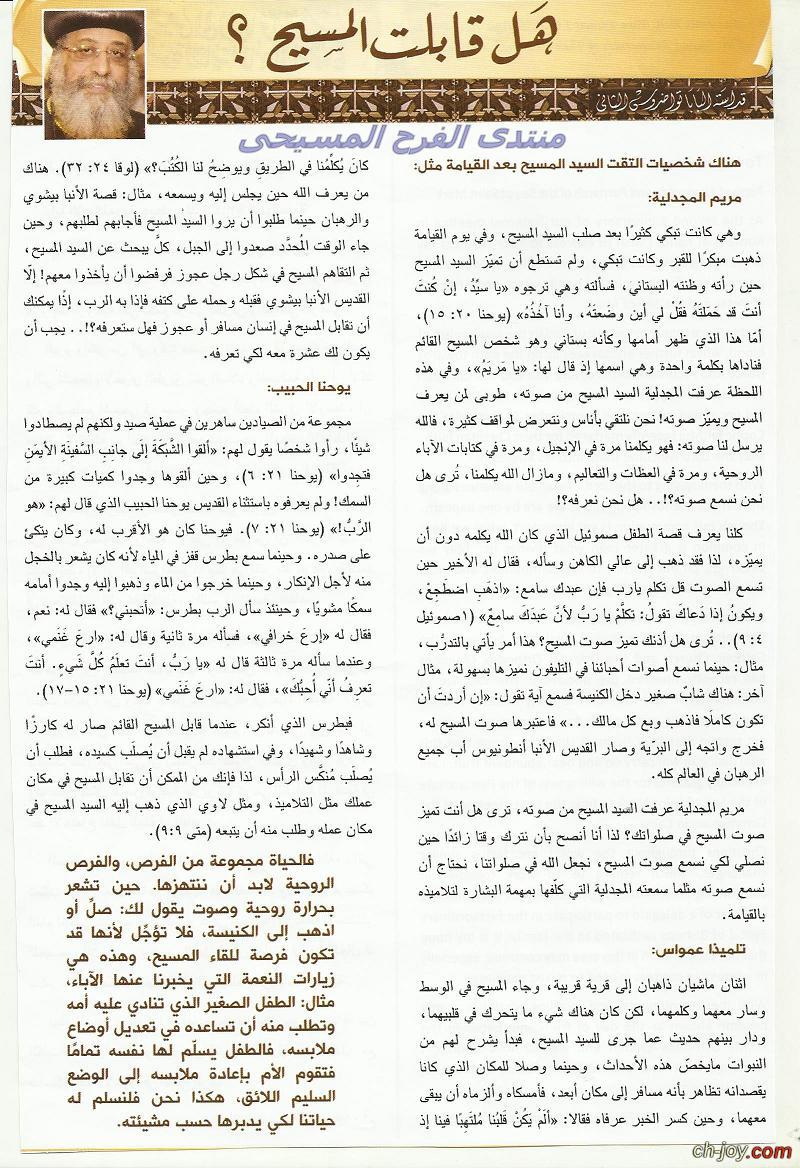 هَل قابلت المسيح ؟
قداسة البابا تواضروس الثاني
منتدى الفرح المسيحى
هناك شخصيات التقت السيد المسيح بعد القيامة مثل:
مريم المجدلية:
وهي كانت تبكي كثيرًا بعد صلب السيد المسيح، وفي يوم القيامة
ذهبت مبكرًا للقبر وكانت تبكي، ولم تستطع أن تميّز السيد المسيح
حين رأته وظنته البستاني، فسألته وهي ترجوه «يا سيِّدُ، إنْ كُنتَ
أنتَ قد حَمَلتَهُ فقُلْ لي أين وضَعتَهُ، وأنا آخُذُهُ» (يوحنا ٢٠: ١٥)،
أمّا هذا الذي ظهر أمامها وكأنه بستاني وهو شخص المسيح القائم
فناداها بكلمة واحدة وهي اسمها إذ قال لها: «يا مَريَمُ»، وفي هذه
اللحظة عرفت المجدلية السيد المسيح من صوته، طوبى لمن يعرف
المسيح ويميّز صوته! نحن نلتقي بأناس ونتعرض لمواقف كثيرة، فالله
يرسل لنا صوته: فهو يكلمنا مرة في الإنجيل، ومرة في كتابات الآباء
الروحية، ومرة في العظات والتعاليم، ومازال الله يكلمنا، تُرى هل
نحن نسمع صوته؟!.. هل نحن نعرفه؟!
كلنا يعرف قصة الطفل صموئيل الذي كان الله يكلمه دون أن
يميّزه، لذا فقد ذهب إلى عالي الكاهن وسأله، فقال له الأخير حين
تسمع الصوت قل تكلم يارب فإن عبدك سامع: «اذهَبِ اضطَجِعْ،
ويكونُ إذا دَعاكَ تقولُ: تكلَّمْ يا رَبُّ لأنَّ عَبدَكَ سامِعٌ» (١صموئيل
٤: ٩).. تُرى هل أذنك تميز صوت المسيح؟ هذا أمر يأتي بالتدرُّب،
مثال: حينما نسمع أصوات أحبائنا في التليفون نميزها بسهولة، مثال
آخر: هناك شابٌ صغير دخل الكنيسة فسمع آية تقول: «إن أردتَ أن
تكون كاملًا فاذهب وبع كل مالك...» فاعتبرها صوت المسيح له،
فخرج واتجه إلى البرّية وصار القديس الأنبا أنطونيوس أب جميع
الرهبان في العالم كله.
مريم المجدلية عرفت السيد المسيح من صوته، ترى هل أنت تميز
صوت المسيح في صلواتك؟ لذا أنا أنصح بأن نترك وقتا زائدًا حين
نصلي لكي نسمع صوت المسيح، نجعل الله في صلواتنا، نحتاج أن
نسمع صوته مثلما سمعته المجدلية التي كلّفها بمهمة البشارة لتلاميذه
بالقيامة.
تلميذا عمواس:
اثنان ماشيان ذاهبان إلى قرية قريبة، وجاء المسيح في الوسط
وسار معهما وكلمهما، لكن كان هناك شيء ما يتحرك في قلبيهما،
ودار بينهم حديث عما جرى للسيد المسيح، فبدأ يشرح لهم من
النبوات مايخصّ هذه الأحداث، وحينما وصلا للمكان الذي كانا
يقصدانه تظاهر بأنه مسافر إلى مكان أبعد، فأمسكاه وألزماه أن يبقى
معهما، وحين كسر الخبر عرفاه فقالا: «ألَمْ يَكُنْ قَلبُنا مُلتَهِبًا فينا إذ
كانَ يُكلِّمُنا في الطريقِ ويوضِحُ لنا الكُتُبَ؟» (لوقا ٢٤: ٣٢). هناك
من يعرف الله حين يجلس إليه ويسمعه، مثال: قصة الأنبا بيشوي
والرهبان حينما طلبوا أن يروا السيد المسيح فأجابهم لطلبهم، وحين
جاء الوقت المُحدَّد صعدوا إلى الجبل، كلٌ يبحث عن السيد المسيح،
ثم التقاهم المسيح في شكل رجل عجوز فرفضوا أن يأخذوا معهم! إلّا
القديس الأنبا بيشوي فقبله وحمله على كتفه فإذا به الرب، إذًا يمكنك
أن تقابل المسيح في إنسان مسافر أو عجوز فهل ستعرفه؟!.. يجب أن
يكون لك عشرة معه لكي تعرفه.
يوحنا الحبيب:
مجموعة من الصيادين ساهرين في عملية صيد ولكنهم لم يصطادوا
شيئًا، رأوا شخصًا يقول لهم: «ألقوا الشَّبَكَةَ إلَى جانِبِ السَّفينَةِ الأيمَنِ
فتجِدوا» (يوحنا ٢١: ٦)، وحين ألقوها وجدوا كميات كبيرة من
السمك! ولم يعرفوه باستثناء القديس يوحنا الحبيب الذي قال لهم: «هو
الرَّبُّ!» (يوحنا ٢١: ٧). فيوحنا كان هو الأقرب له، وكان يتكئ
على صدره. وحينما سمع بطرس قفز في المياه لأنه كان يشعر بالخجل
منه لأجل الإنكار، وحينما خرجوا من الماء وذهبوا إليه وجدوا أمامه
سمكًا مشويًا، وحينئذ سأل الرب بطرس: «أتحبني؟» فقال له: نعم،
فقال له «إرعَ خرافي»، فسأله مرة ثانية وقال له: «ارعَ غَنَمي»،
وعندما سأله مرة ثالثة قال له «يا رَبُّ، أنتَ تعلَمُ كُلَّ شَيءٍ. أنتَ
تعرِفُ أنّي أُحِبُّكَ»، فقال له: «ارعَ غَنَمي» (يوحنا ٢١: ١٥-١٧).
فبطرس الذي أنكر، عندما قابل المسيح القائم صار له كارزًا
وشاهدًا وشهيدًا، وفي استشهاده لم يقبل أن يُصلَب كسيده، فطلب أن
يُصلَب مُنكَّس الرأس، لذا فإنك من الممكن أن تقابل المسيح في مكان
عملك مثل التلاميذ، ومثل لاوي الذي ذهب إليه السيد المسيح في
مكان عمله وطلب منه أن يتبعه (متى ٩:٩).
فالحياة مجموعة من الفرص، والفرص
الروحية لابد أن ننتهزها. حين تشعر
بحرارة روحية وصوت يقول لك: صلِّ أو
اذهب إلى الكنيسة، فلا تؤجِّل لأنها قد
تكون فرصة للقاء المسيح، وهذه هي
زيارات النعمة التي يخبرنا عنها الآباء،
مثال: الطفل الصغير الذي تنادي عليه أمه
وتطلب منه أن تساعده في تعديل أوضاع
ملابسه، فالطفل يسلّم لها نفسه تمامًا
فتقوم الأم بإعادة ملابسه إلى الوضع
السليم اللائق، هكذا نحن فلنسلم له
حياتنا لكي يدبرها حسب مشيئته.
ch-joy.com